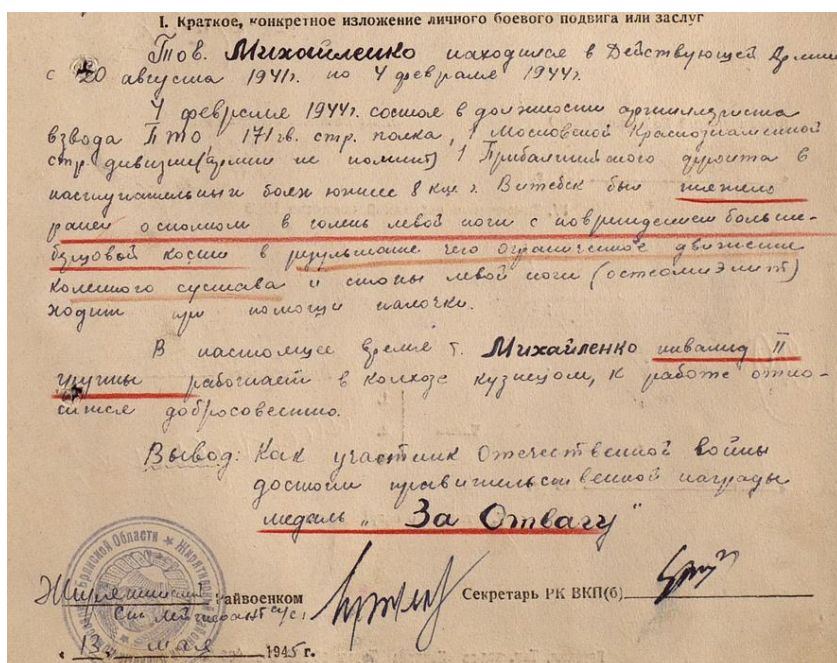 I. Краткое, конкретное изложение личного боевого подвига или заслуг
Тов. Михайленко находился в Действующей Армии
с 20 августа 1941г. по 4 февраля 1944г.
4 февраля 1944г. состоя в должности артиллериста
взвода ПТО 171 гв. стр. полка, 1 Московской Краснознаменной
стр. дивизии (армии не помнит) 1 Прибалтийского фронта в
наступательных боях южнее 8 км. г. Витебск был тяжело
ранен осколком в голень левой ноги с повреждением больше-
берцовой кости в результате чего ограниченное движение
коленного сустава и стопы левой ноги (остеомиэлит)
ходит при помощи палочки.
В настоящее время т. Михайленко инвалид II
группы работает в колхозе кузнецом, к работе отно-
сится добросовестно.
Вывод: Как участник Отечественной войны
достоин правительственной награды
медаль „За Отвагу"
Жирятинский Райвоенком
Секретарь РК ВКП(б)
Ст. лейтенант а/с
„13" мая 1945 г.